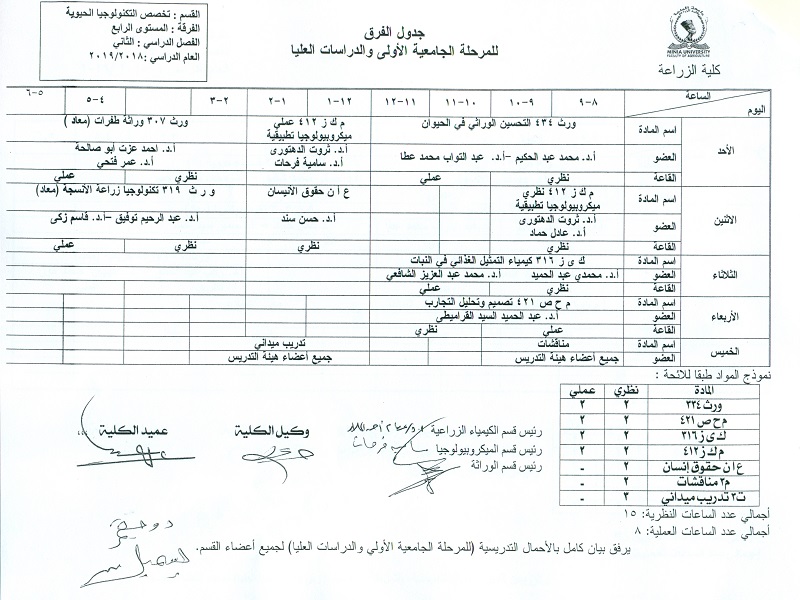 القسم : تخصص التكنولوجيا الحيوية
الفرقة : المستوى الرابع
الفصل الدراسي : الثاني
العام الدراسي : ٢٠١٩/٢٠١٨
جدول الفرق
للمرحلة الجامعية الأولى والدراسات العليا
MINIA UNIVERSITY
FACULTY OF AGRICULTURE
كلية الزراعة
الساعة
اليوم
٨-٩ ٩-١٠ ١٠-١١ ١١-١٢ ١٢-١ ١-٢ ٢-٣ ٤-٥ ٥-٦
الأحد
اسم المادة
ورث ٤٣٤ التحسين الوراثي في الحيوان
م ك ز ٤١٢ عملي
ميكروبيولوجيا تطبيقية
ورث ٣٠٧ وراثة طفرات (معاد )
العضو
أ.د. محمد عبد الحكيم –أ.د. عبد التواب محمد عطا
أ.د. ثروت الدهتورى
أ.د. سامية فرحات
أ.د. احمد عزت أبو صالحة
أ.د. عمر فتحي
القاعة
نظري عملي نظري عملي
الاثنين
اسم المادة
م ك ز ٤١٢ نظري
ميكروبيولوجيا تطبيقية
ع أ ن حقوق الانيسان
و ر ث ٣١٩ تكنولوجيا زراعة الآنسجة (معاد)
العضو
أ.د. ثروت الدهتورى
أ.د. عادل حماد
أ.د. حسن سند
أ.د. عبد الرحيم توفيق –أ.د. قاسم زكى
القاعة
نظري نظري نظري عملي
الثلاثاء
اسم المادة
ك ى ز ٣١٦ كيمياء التمثيل الغذائي في النبات
العضو
أ.د. محمدي عبد الحميد أ.د. محمد عبد العزيز الشافعي
القاعة
نظري عملي
الأربعاء
اسم المادة
م ح ص ٤٢١ تصميم وتحليل التجارب
العضو
أ.د. عبد الحميد السيد القراميطى
القاعة
عملي نظري
الخميس
اسم المادة
مناقشات تدريب ميداني
العضو
جميع أعضاء هيئة التدريس جميع أعضاء هيئة التدريس
نموذج المواد طبقا للائحة :
المادة نظري عملي
ورث ٣٣٤ ٢ ٢
م ح ص ٤٢١ ٢ ٢
ك ى ز ٣١٦ ٢ ٢
م ك ز ٤١٢ ٢ ٢
ع ان حقوق إنسان ٢ -
م٢ مناقشات ٢ -
ت٣ تدريب ميداني ٣ -
أجمالي عدد الساعات النظرية: ١٥
أجمالي عدد الساعات العملية: ٨
رئيس قسم الكيمياء الزراعية
رئيس قسم الميكروبيولوجيا
رئيس قسم الوراثة
وكيل الكلية
عميد الكلية
يرفق بيان كامل بالأحمال التدريسية (للمرحلة الجامعية الأولي والدراسات العليا) لجميع أعضاء القسم.